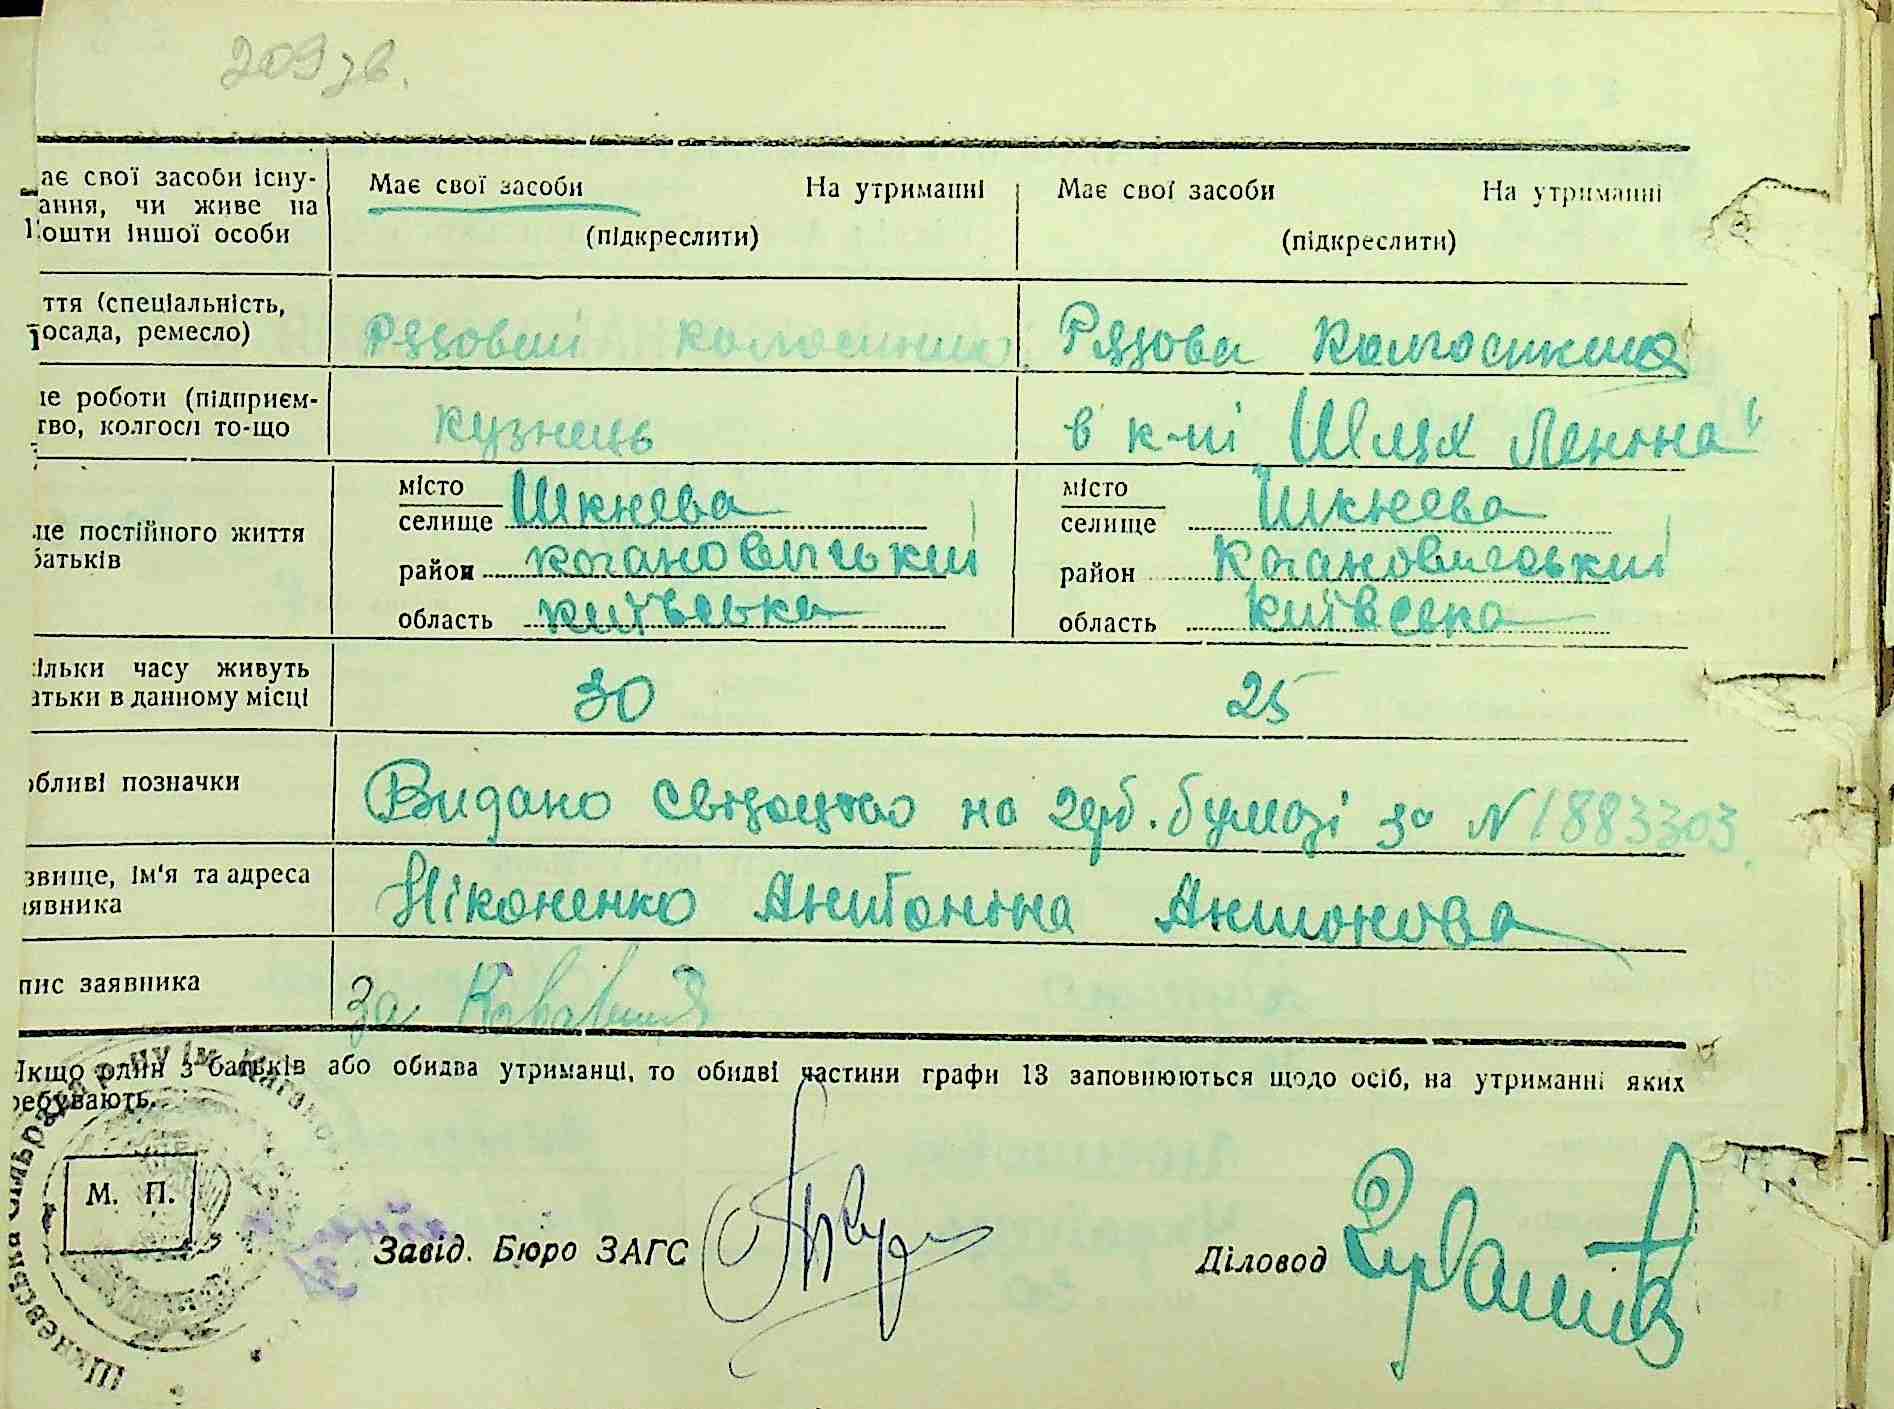 209 зв.
ає свої засоби існу- Має свої засоби На утриманні Має свої засоби На утриманні
ання, чи живе на
кошти іншої особи (підкреслити) (підкреслити)
ття (спеціальність,
посада, ремесло) Рядовий колгосиник Рядова Колгосиниця
це роботи (підприєм-
тво, колгосп то-що кузнець в к-пі „Шлях Леніна“
місто Шкнева місто Шкнева
селище селище
це постійного життя
батьків район Когановицький район Когановицький
область Київська область Київська
ільки часу живуть
атьки в данному місці 30 25
обливі позначки Видано свідоцтво на герб. бумазі за N 1883303
звище, ім'я та адреса
аявника Ніконенко Антоніна Антонова
пис заявника За
Якщо один з батьків або обидва утриманці, то обидві частини графи 13 заповнюються щодо осіб, на утриманні яких
ребувають.
Шкневська сільрада р-ну ім. Каганов
М. П.
Завід. Бюро ЗАГС Діловод